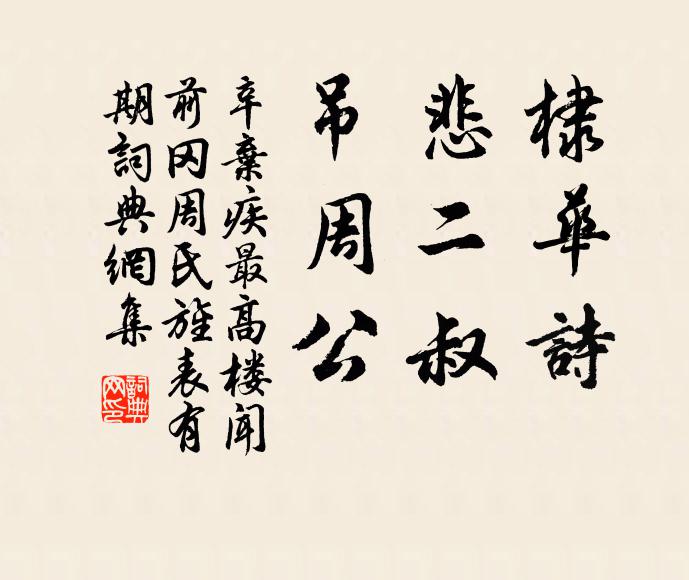 棣華詩
悲二叔
吊周公
辛棄疾最高楼聞
前冈周氏旌表有
期詞典網集
詞典
网印